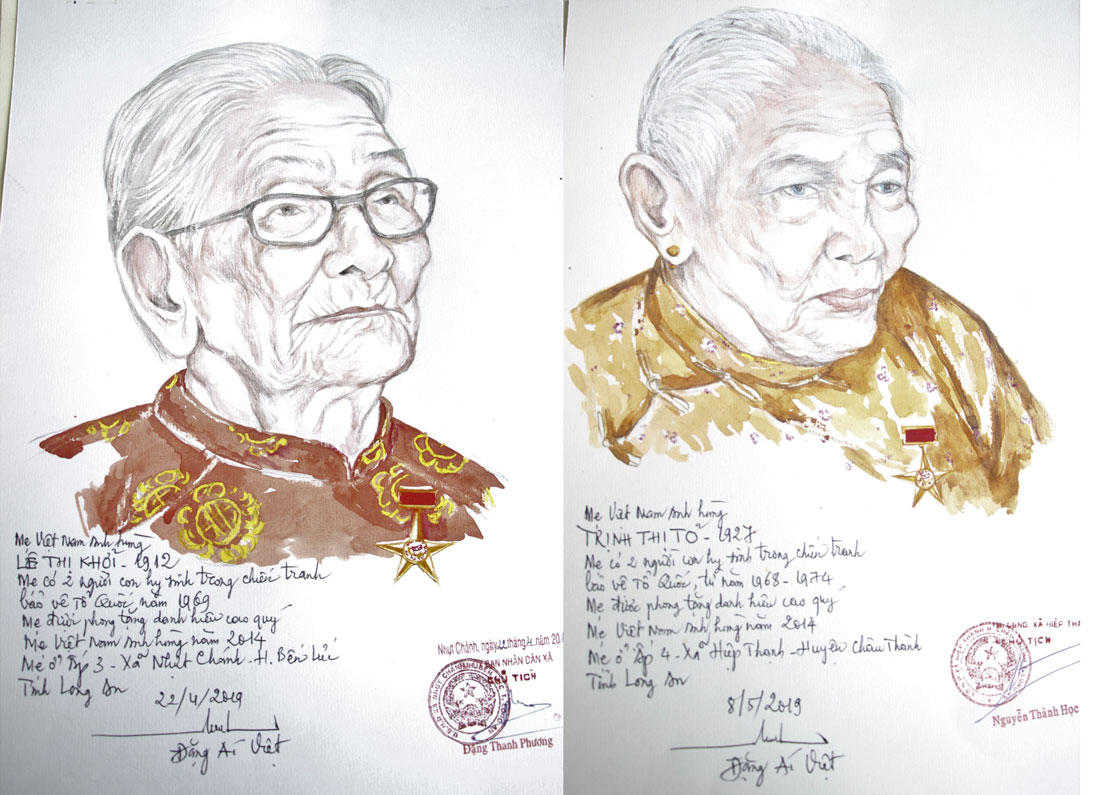 Mẹ Việt Nam Anh hùng
LÊ THỊ KHỞI - 1912
Mẹ có 2 người con hy sinh trong chiến tranh
bảo vệ Tổ Quốc, năm 1969
Mẹ được phong tặng danh hiệu cao quý
Mẹ Việt Nam Anh hùng năm 2014
Mẹ ở Ấp 3 - Xã Nhựt Chánh - H. Bến Lức
Tỉnh Long An
22/4/2019
Đặng Ái Việt
Nhựt Chánh, ngày 22 tháng 4 năm 20
BAN NHÂN DÂN XÃ
CHỦ TỊCH
Đặng Thanh Phương
Mẹ Việt Nam Anh hùng
TRỊNH THỊ TỎ - 1927
Mẹ có 2 người con hy sinh trong chiến tranh
bảo vệ Tổ Quốc, từ năm 1968 - 1974
Mẹ được phong tặng danh hiệu cao quý
Mẹ Việt Nam Anh hùng năm 2014
Mẹ ở Ấp 4 - Xã Hiệp Thạnh - Huyện Châu Thành
Tỉnh Long An
8/5/2019
Đặng Ái Việt
XÃ HIỆP THẠ
CHỦ TỊCH
Nguyễn Thành Học